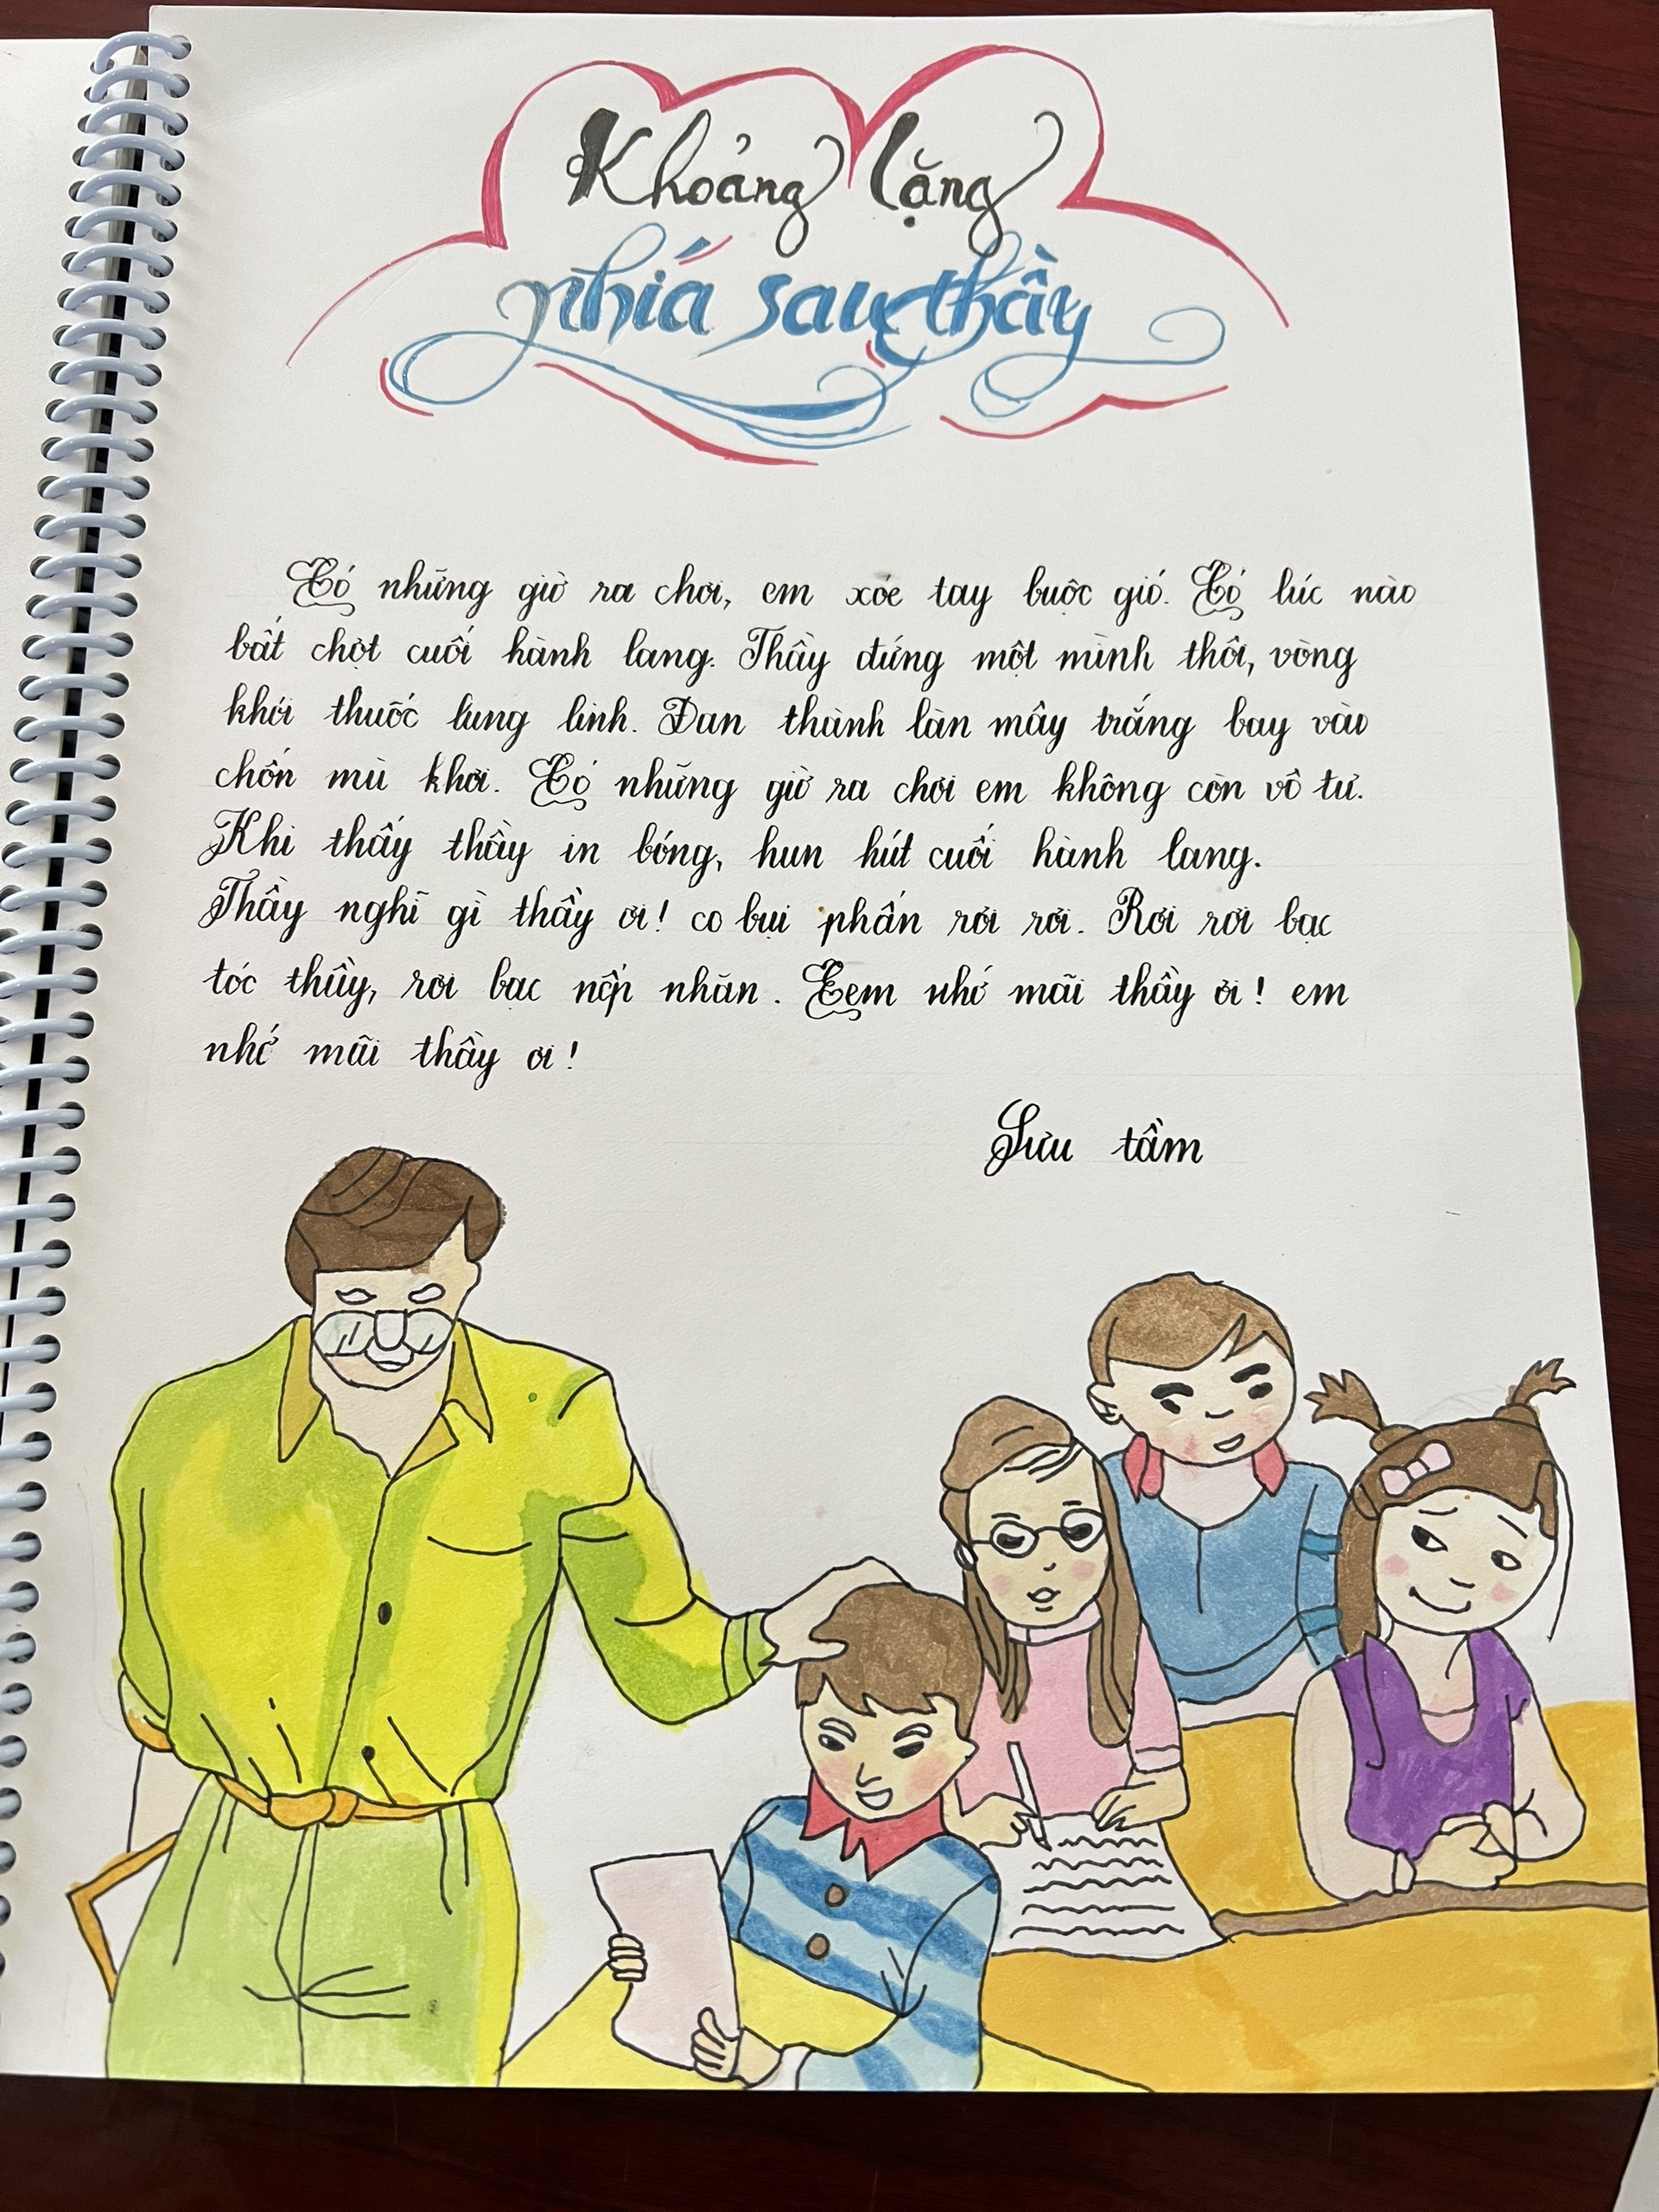 Khoảng lặng
phía sau thầy
Có những giờ ra chơi, em xóe tay buộc gió. Có lúc nào
bất chợt cuối hành lang. Thầy đứng một mình thôi, vòng
khói thuốc lung linh. Đan thành làn mây trắng bay vào
chốn mù khơi. Có những giờ ra chơi em không còn vô tư.
Khi thấy thầy in bóng, hun hút cuối hành lang.
Thầy nghĩ gì thầy ơi! co bụi phấn rơi rơi. Rơi rơi bạc
tóc thầy, rơi bạc nếp nhăn. Eem nhớ mãi thầy ơi! em
nhớ mãi thầy ơi!
Sưu tầm